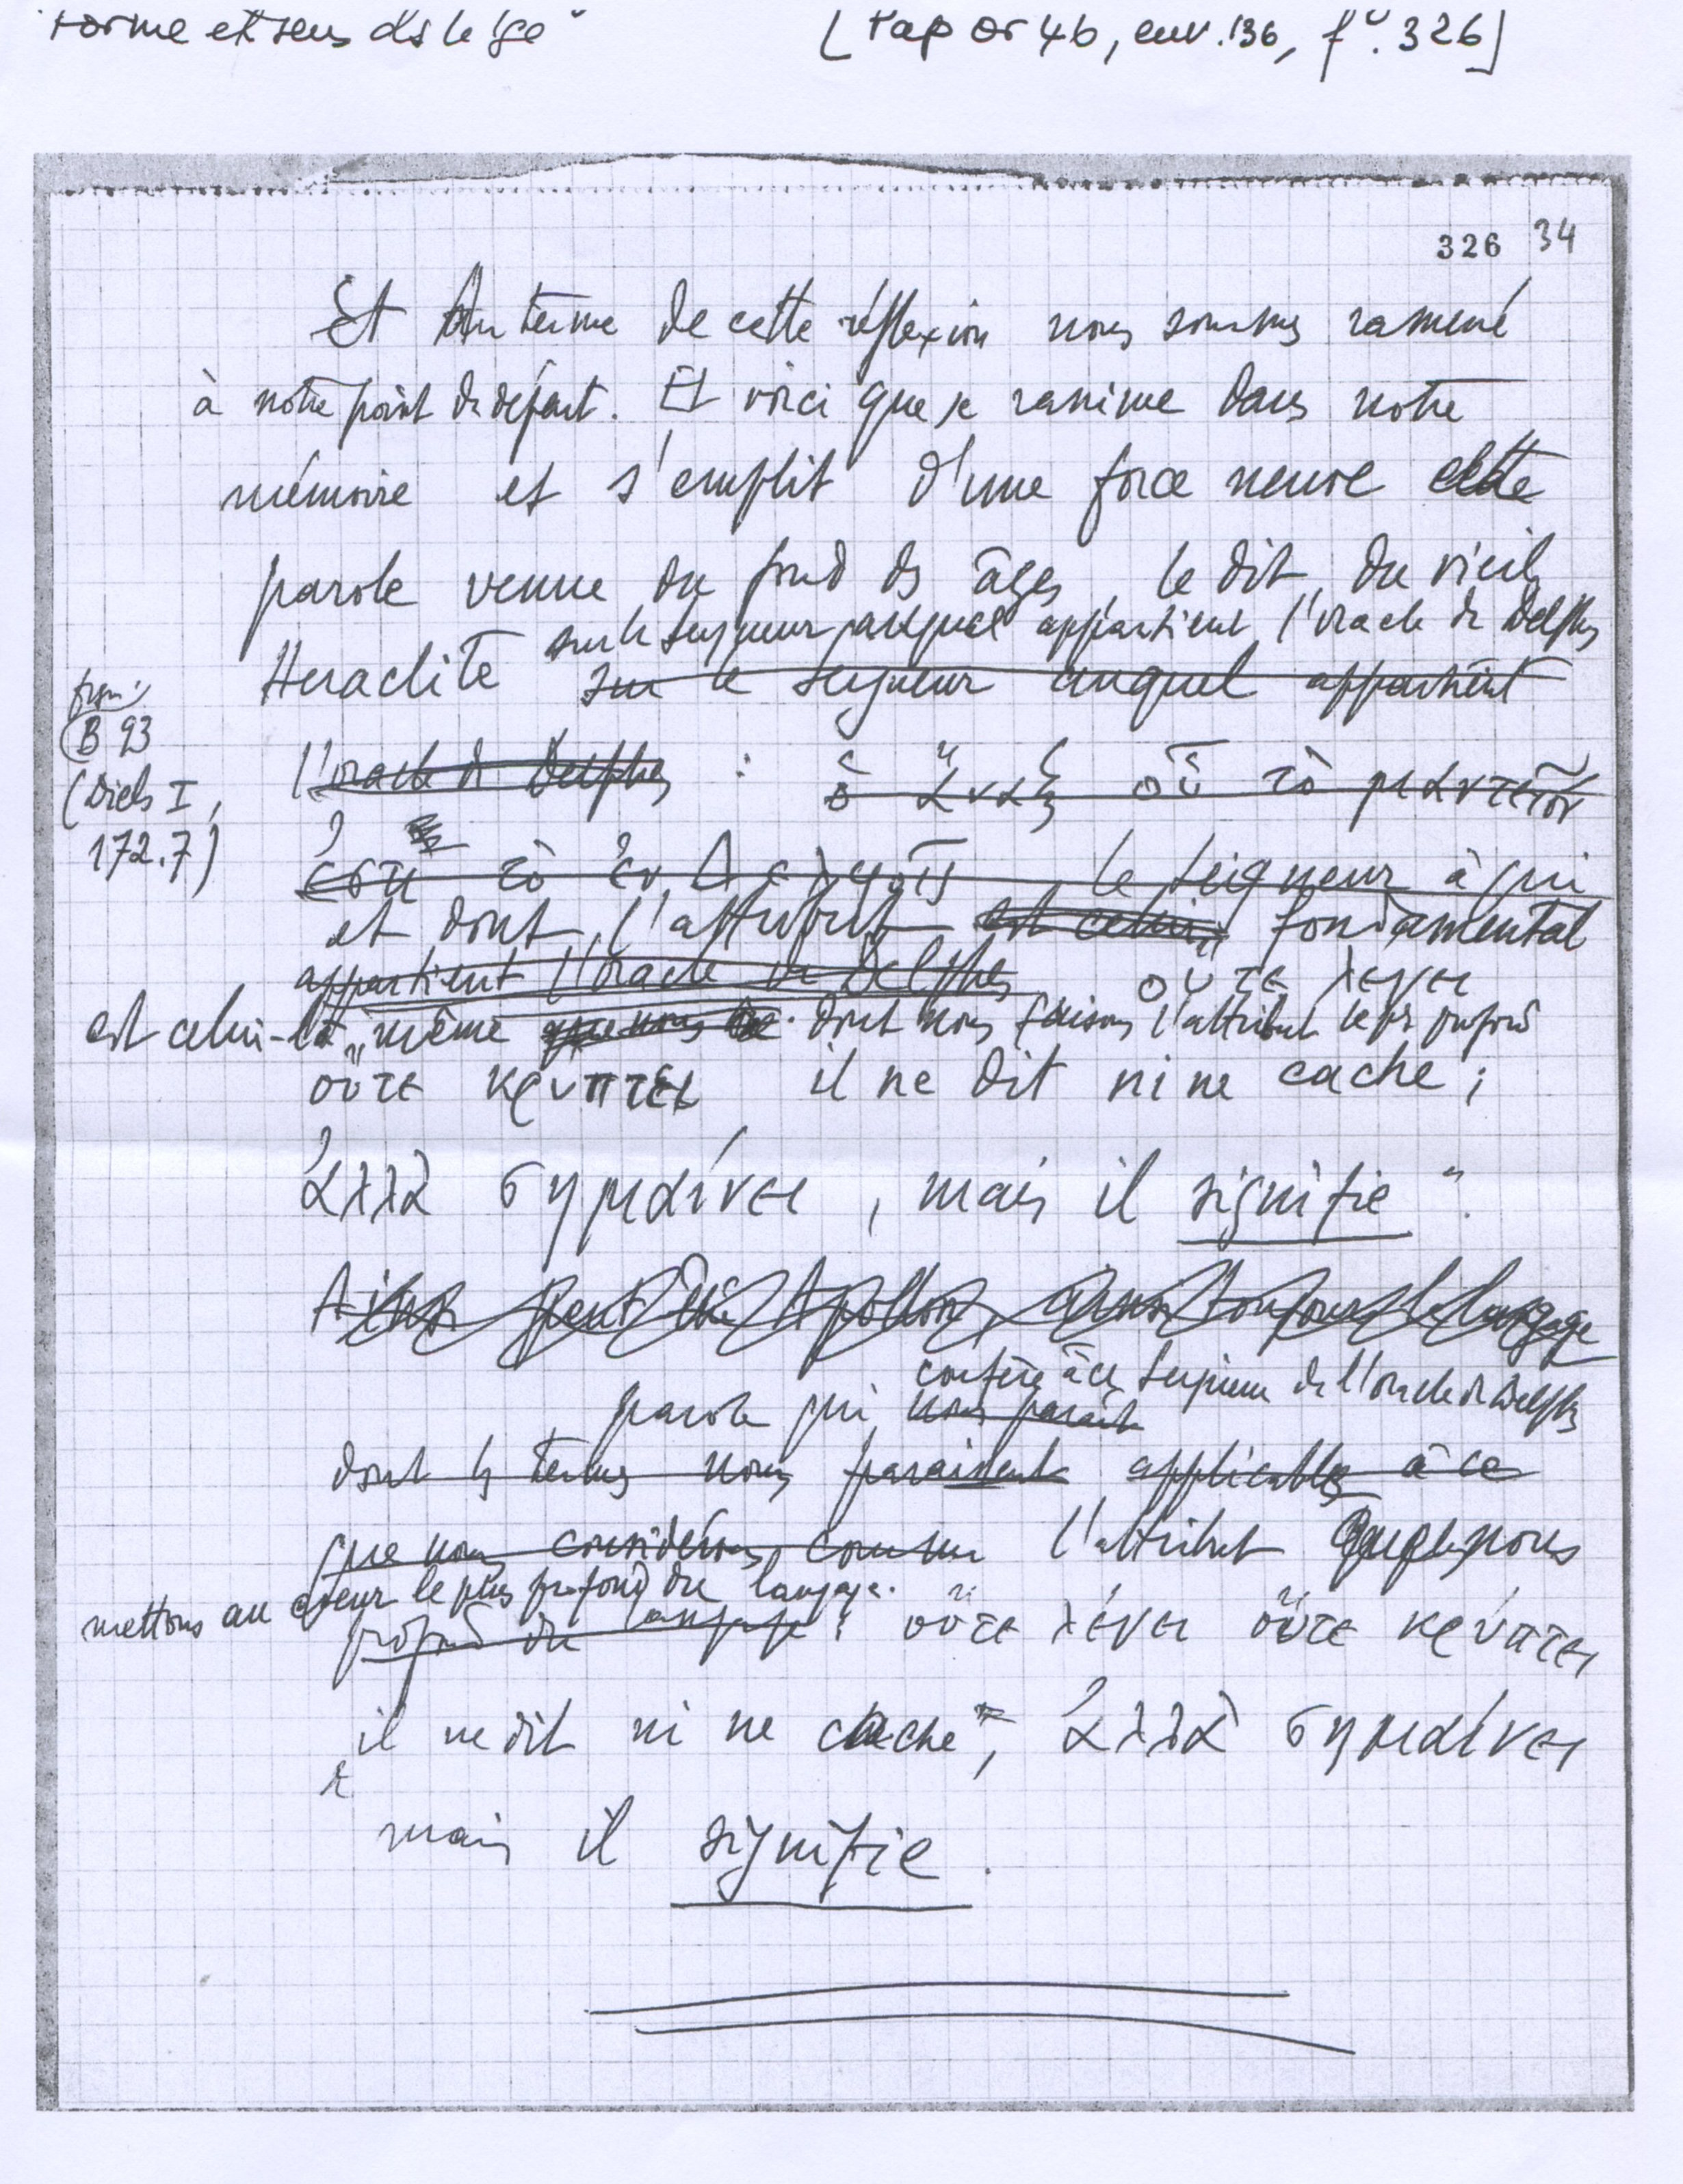 Forme et sens ds le lge"
[Pap Or 46, env. 136, f°. 326]
326 34
Et Au terme de cette réflexion nous sommes ramené
à notre point de départ. Et voici que se ranime dans notre
mémoire et s'emplit d'une force neuve cette
parole venue du fond ds âges, le dit du vieil
sur le seigneur auquel appartient l'oracle de Delphes
Heraclite sur le seigneur auquel appartient
fragm.
B 93
(Diels I,
172.7)
l'oracle de Delphes : ὁ ἄναξ οὗ τὸ μαντεῖον
ἐστι τὸ ἐν Δελφοῖς le seigneur à qui
et dont l'attribut est celui fondamental
appartient l'oracle de Delphes οὔτε λεγει
est celui-là même que nous dont nous faisons l'attribut le pr profond
οὔτε κρυπτει il ne dit ni ne cache ;
ἀλλὰ σημαίνει, mais il signifie".
Ainsi peut-être Apollon, ainsi toujours le langage
confère à ce seigneur de l'oracle de Delphes
parole qui nous paraît
dont ls termes nous paraissent applicables à ce
que nous considérons comme l'attribut que nous
mettons au coeur le plus profond du langage.
profond du langage : οὔτε λέγει οὔτε κρύπτει
il ne dit ni ne cache", ἀλλὰ σημαίνει
mais il signifie.